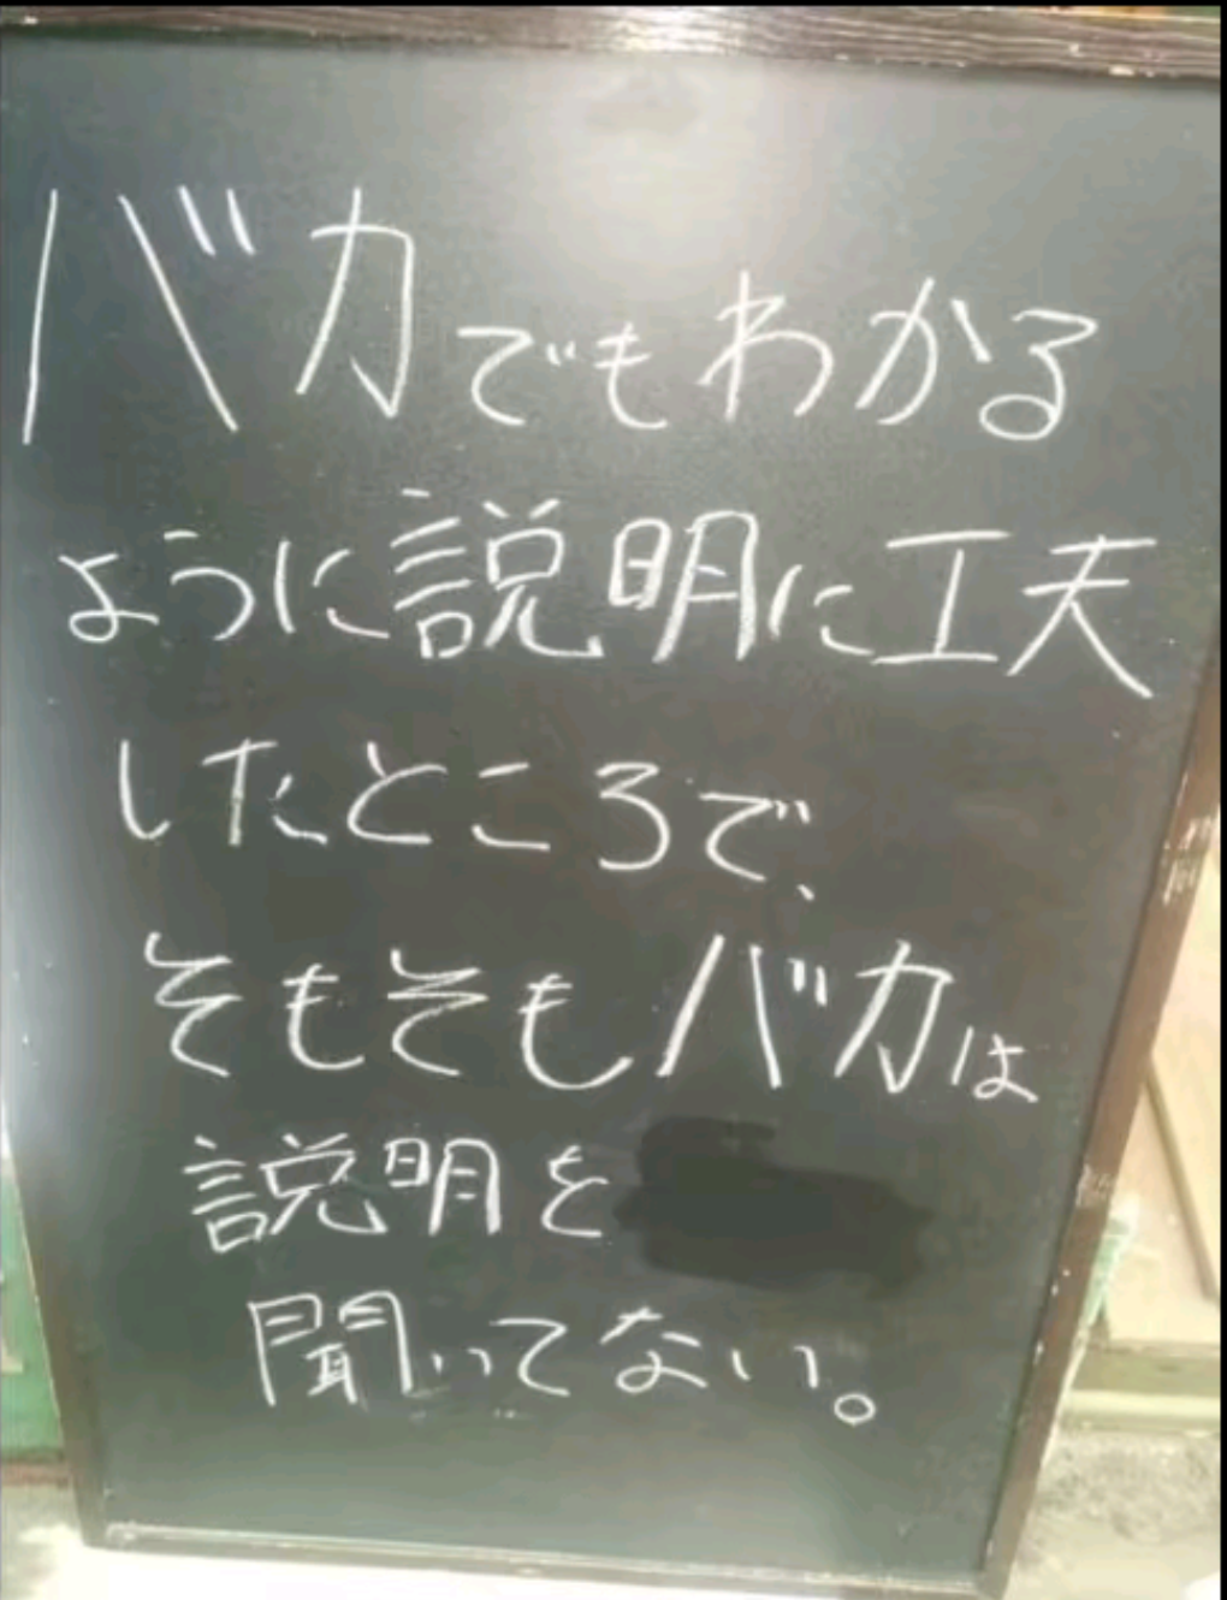 バカでもわかる
ように説明に工夫
したところで、
そもそもバカは
説明を
聞いてない。